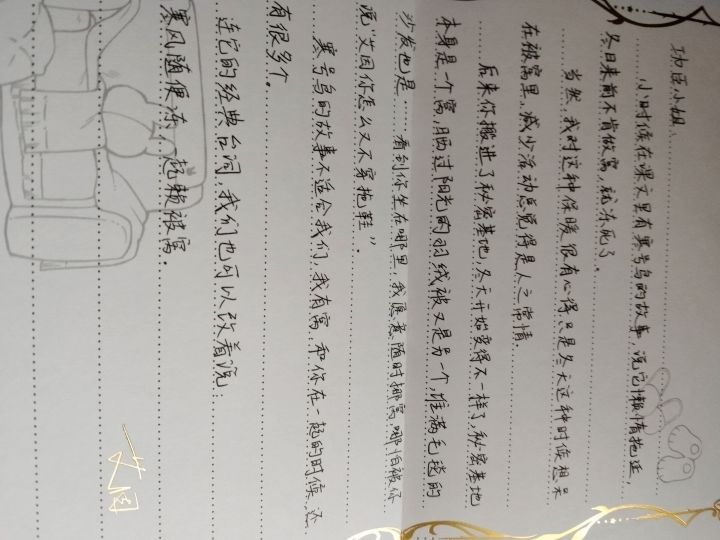 小姐、
小时候在课文里有寒号鸟的故事，说它懒惰拖延，
冬日来前不肯做窝，就冻死了。
当然，我对这种保暖很有心得，只是冬天这种时候想呆
在被窝里，减少流动总觉得是人之常情。
后来你搬进了秘密基地，冬天开始变得不一样了，秘密基地
本身是一个窝，晒过阳光的羽绒被又是另一个，堆满毛毯的
沙发也是……看到你坐在哪里，我愿意随时挪窝，哪怕被你
说“艾因你怎么又不穿拖鞋”。
寒号鸟的故事不适合我们，我有窝，和你在一起的时候，还
有很多个。
连它的经典台词，我们也可以改着说：
寒风随便冻，一起赖被窝。
艾因